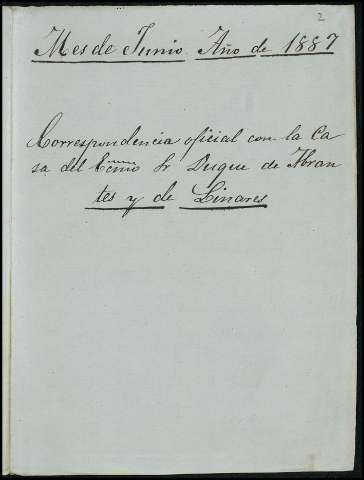 2
Mes de Junio Año de 1887
Correspondencia oficial con la Ca
sa del Ecmo Sr Duque de Abran
tes y de Linares